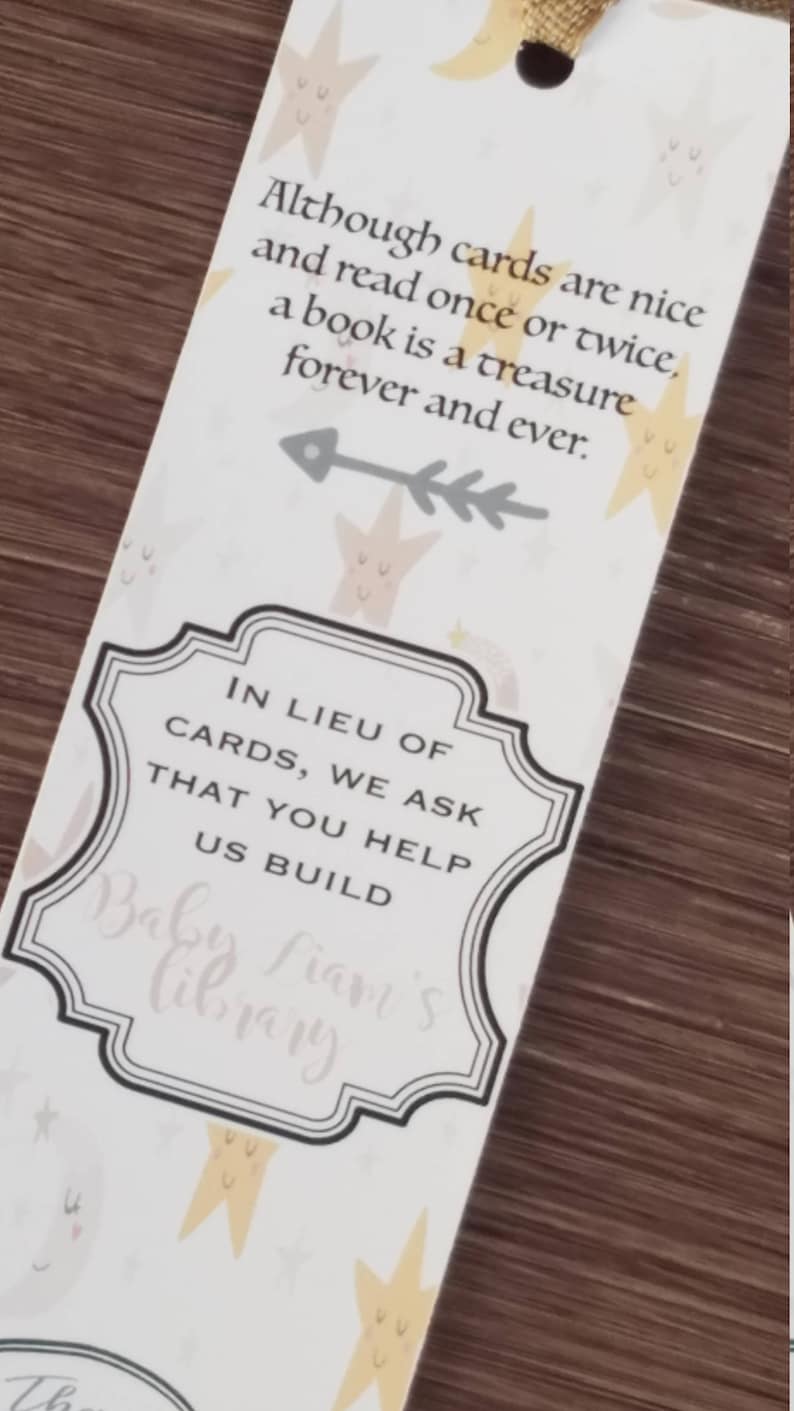 Although cards are nice
and read once or twice,
a book is a treasure
forever and ever.
IN LIEU OF
CARDS, WE ASK
THAT YOU HELP
US BUILD
Baby Liam's
library